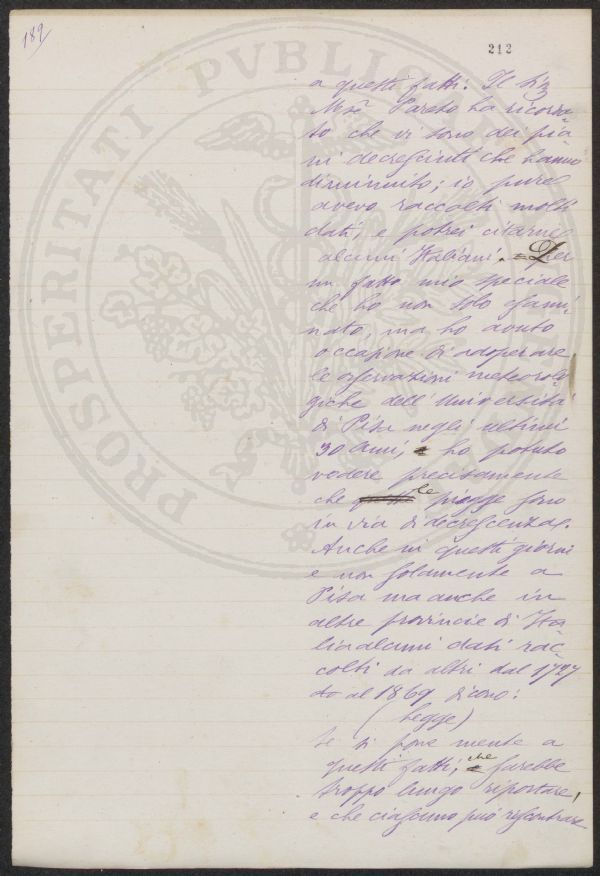 189
212
PROSPERITATI PVBLICAE
a questi fatti. Il
Pareto ha ricorda
to che vi sono dei fiu
mi decresciuti che hanno
diminuito; io pure
avevo raccolti molti
dati, e potrei citarne
alcuni Italiani. Per
un fatto mio speciale
che ho non solo esami
nato, ma ho avuto
occasione di adoperare
le osservazioni meteorolo
giche dell'Università
di Pisa negli ultimi
30 anni, ho potuto
vedere precisamente
che le piogge sono
in via di decrescenza.
Anche in questi giorni
e non solamente a
Pisa ma anche in
altre provincie di Ita
lia alcuni dati rac
colti da altri dal 1727
al 1869 dicono:
(Legge)
Se si pone mente a
questi fatti, che sarebbe
troppo lungo riportare,
e che ciascuno può riscontrare